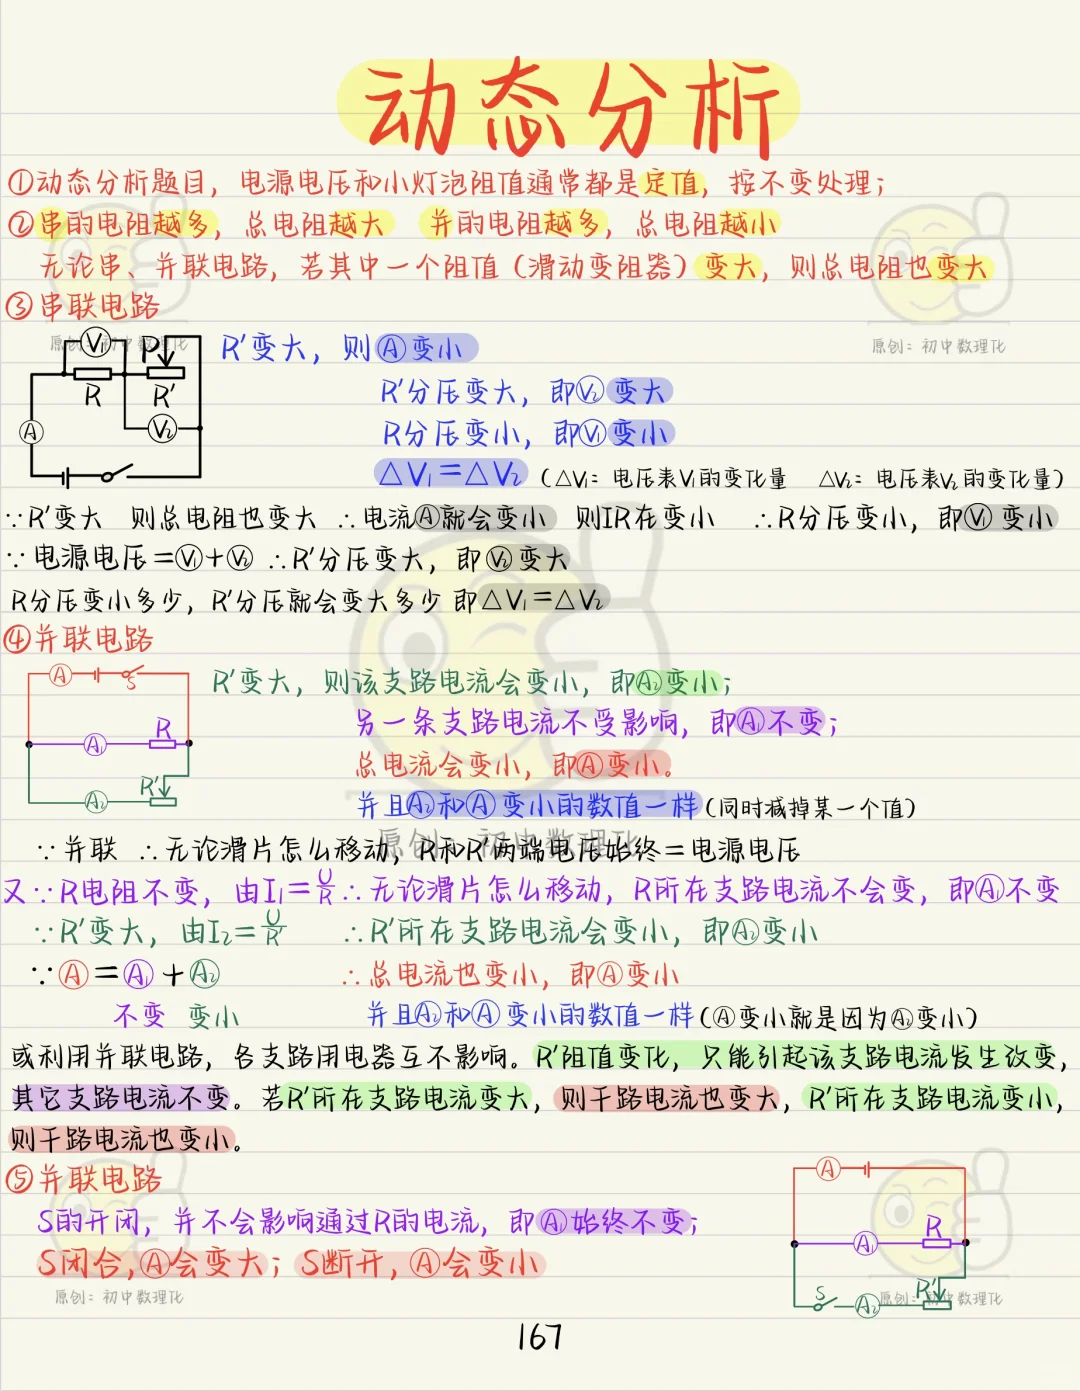 动态分析
①动态分析题目，电源电压和小灯泡阻值通常都是定值，按不变处理；
②串的电阻越多，总电阻越大　并的电阻越多，总电阻越小
无论串、并联电路，若其中一个阻值（滑动变阻器）变大，则总电阻也变大
③串联电路
原创：初中数理化
原创：初中数理化
V₁ P
R R′
A V₂
R′变大，则Ⓐ变小
R′分压变大，即V₂变大
R分压变小，即V₁变小
△V₁=△V₂（△V₁：电压表V₁的变化量　△V₂：电压表V₂的变化量）
∵R′变大　则总电阻也变大　∴电流Ⓐ就会变小　则IR在变小　∴R分压变小，即V₁变小
∵电源电压=V₁+V₂　∴R′分压变大，即V₂变大
R分压变小多少，R′分压就会变大多少 即△V₁=△V₂
④并联电路
A S
A₁ R
A₂ R′
R′变大，则该支路电流会变小，即A₂变小；
另一条支路电流不受影响，即A₁不变；
总电流会变小，即Ⓐ变小。
并且A₂和Ⓐ变小的数值一样（同时减掉某一个值）
原创：初中数理化
∵并联　∴无论滑片怎么移动，R和R′两端电压始终=电源电压
又∵R电阻不变，由I₁=U/R ∴无论滑片怎么移动，R所在支路电流不会变，即A₁不变
∵R′变大，由I₂=U/R′　∴R′所在支路电流会变小，即A₂变小
∵Ⓐ=A₁+A₂　∴总电流也变小，即Ⓐ变小
不变　变小　并且A₂和Ⓐ变小的数值一样（Ⓐ变小就是因为A₂变小）
或利用并联电路，各支路用电器互不影响。R′阻值变化，只能引起该支路电流发生改变，
其它支路电流不变。若R′所在支路电流变大，则干路电流也变大，R′所在支路电流变小，
则干路电流也变小。
⑤并联电路
S的开闭，并不会影响通过R的电流，即A₁始终不变；
S闭合，Ⓐ会变大；S断开，Ⓐ会变小
A
A₁ R
S A₂ R′
原创：初中数理化
原创：初中数理化
167